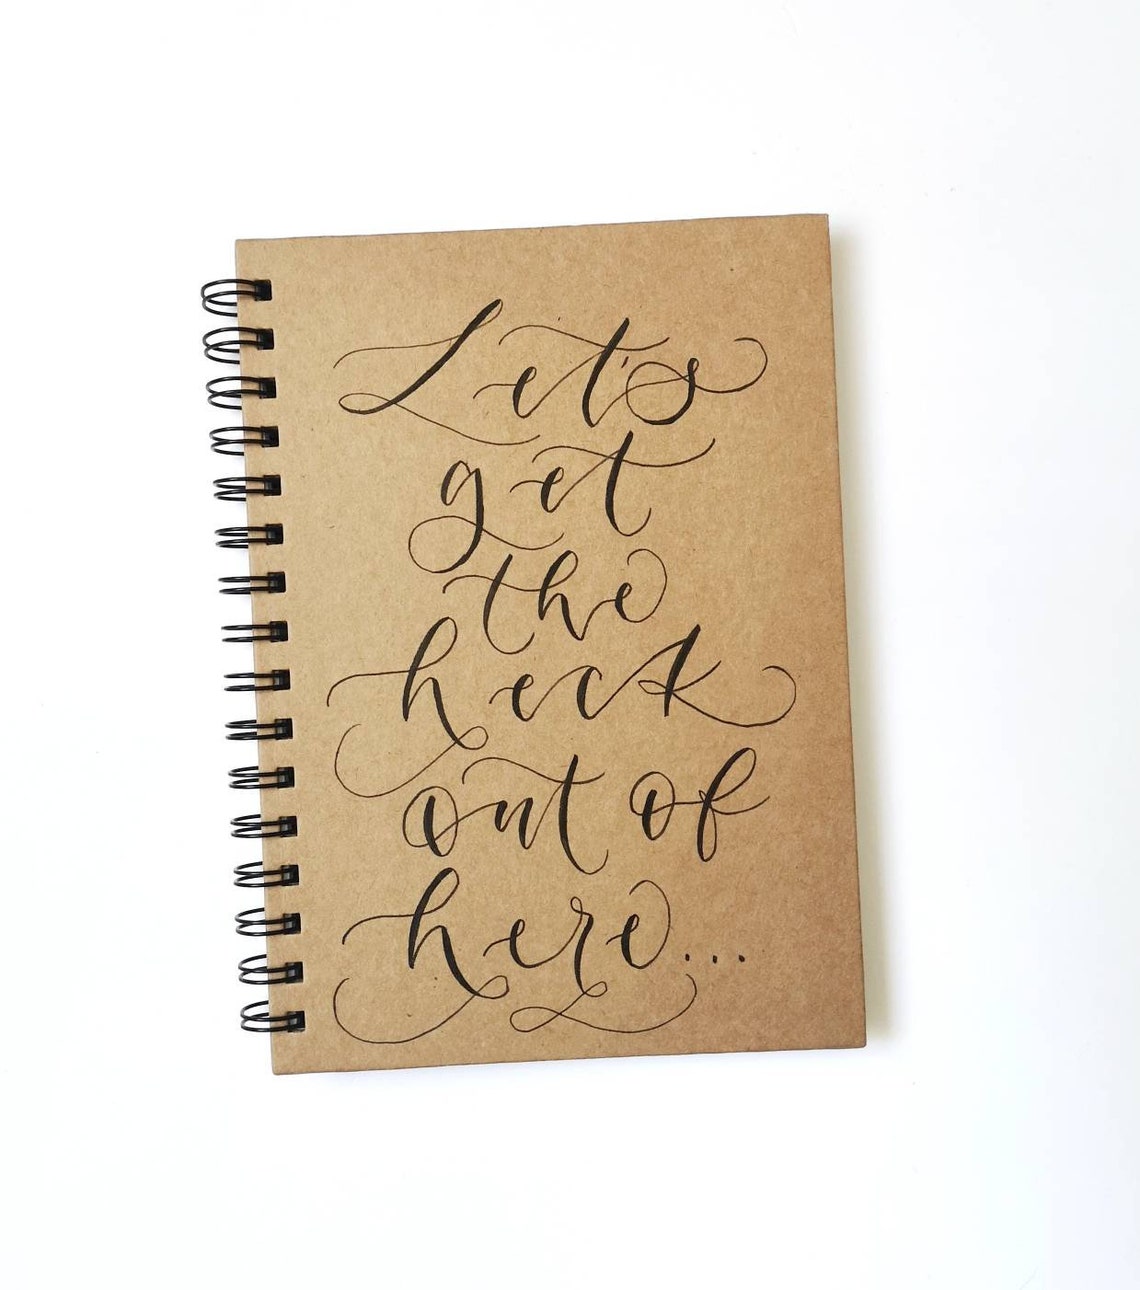 Let's
get
the
heck
out of
here...